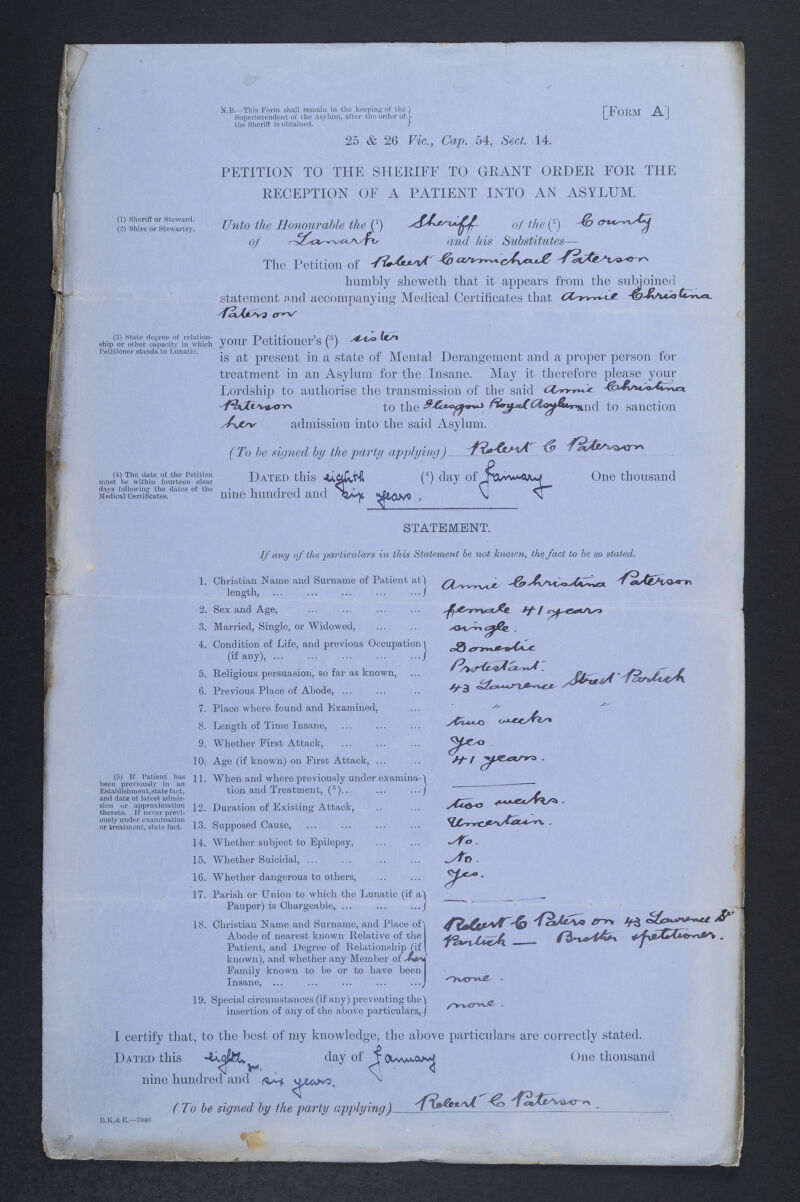 N.B.—This Form shall remain in the keeping of the
Superintendent of the Asylum, after the order of
the Sheriff is obtained.
[FORM A]
25 & 26 Vic., Cap. 54, Sect. 14.
PETITION TO THE SHERIFF TO GRANT ORDER FOR THE
RECEPTION OF A PATIENT INTO AN ASYLUM.
(1) Sheriff or Steward.
(2) Shire or Stewartry.
Unto the Honourable the (1) Sheriff of the (2) County
of Lanark and his Substitutes—
The Petition of Robert Carmichael Paterson
humbly sheweth that it appears from the subjoined
statement and accompanying Medical Certificates that Annie Christina
Paterson
(3) State degree of relation-
ship or other capacity in which
Petitioner stands to Lunatic.
your Petitioner's (3) sister
is at present in a state of Mental Derangement and a proper person for
treatment in an Asylum for the Insane. May it therefore please your
Lordship to authorise the transmission of the said Annie Christina
Paterson to the Glasgow Royal Asylum and to sanction
her admission into the said Asylum.
(To be signed by the party applying) Robert C Paterson
(4) The date of the Petition
must be within fourteen clear
days following the dates of the
Medical Certificates.
DATED this eighth (4) day of January One thousand
nine hundred and six years.
STATEMENT.
If any of the particulars in this Statement be not known, the fact to be so stated.
1. Christian Name and Surname of Patient at
length, ... Annie Christina Paterson
2. Sex and Age, ... female 41 years
3. Married, Single, or Widowed, ... single.
4. Condition of Life, and previous Occupation
(if any), ... Domestic
5. Religious persuasion, so far as known, ... Protestant.
6. Previous Place of Abode, ... 43 Lawrence Street Partick
7. Place where found and Examined, ... " "
8. Length of Time Insane, ... two weeks
9. Whether First Attack, ... Yes.
10. Age (if known) on First Attack, ... 41 years.
(5) If Patient has
been previously in an
Establishment, state fact,
and date of latest admis-
sion or approximation
thereto. If never previ-
ously under examination
or treatment, state fact.
11. When and where previously under examina-
tion and Treatment, (5)... ——
12. Duration of Existing Attack, ... two weeks.
13. Supposed Cause, ... Uncertain.
14. Whether subject to Epilepsy, ... No.
15. Whether Suicidal, ... No.
16. Whether dangerous to others, ... Yes.
17. Parish or Union to which the Lunatic (if a
Pauper) is Chargeable, ... ——
18. Christian Name and Surname, and Place of
Abode of nearest known Relative of the
Patient, and Degree of Relationship (if
known), and whether any Member of her
Family known to be or to have been
Insane, ...
Robert C Paterson 43 Lawrence St
Partick — Brother & petitioner.
none.
19. Special circumstances (if any) preventing the
insertion of any of the above particulars, none.
I certify that, to the best of my knowledge, the above particulars are correctly stated.
DATED this eighth day of January One thousand
nine hundred and six years.
(To be signed by the party applying) Robert C Paterson.
B.K.& E.—7046